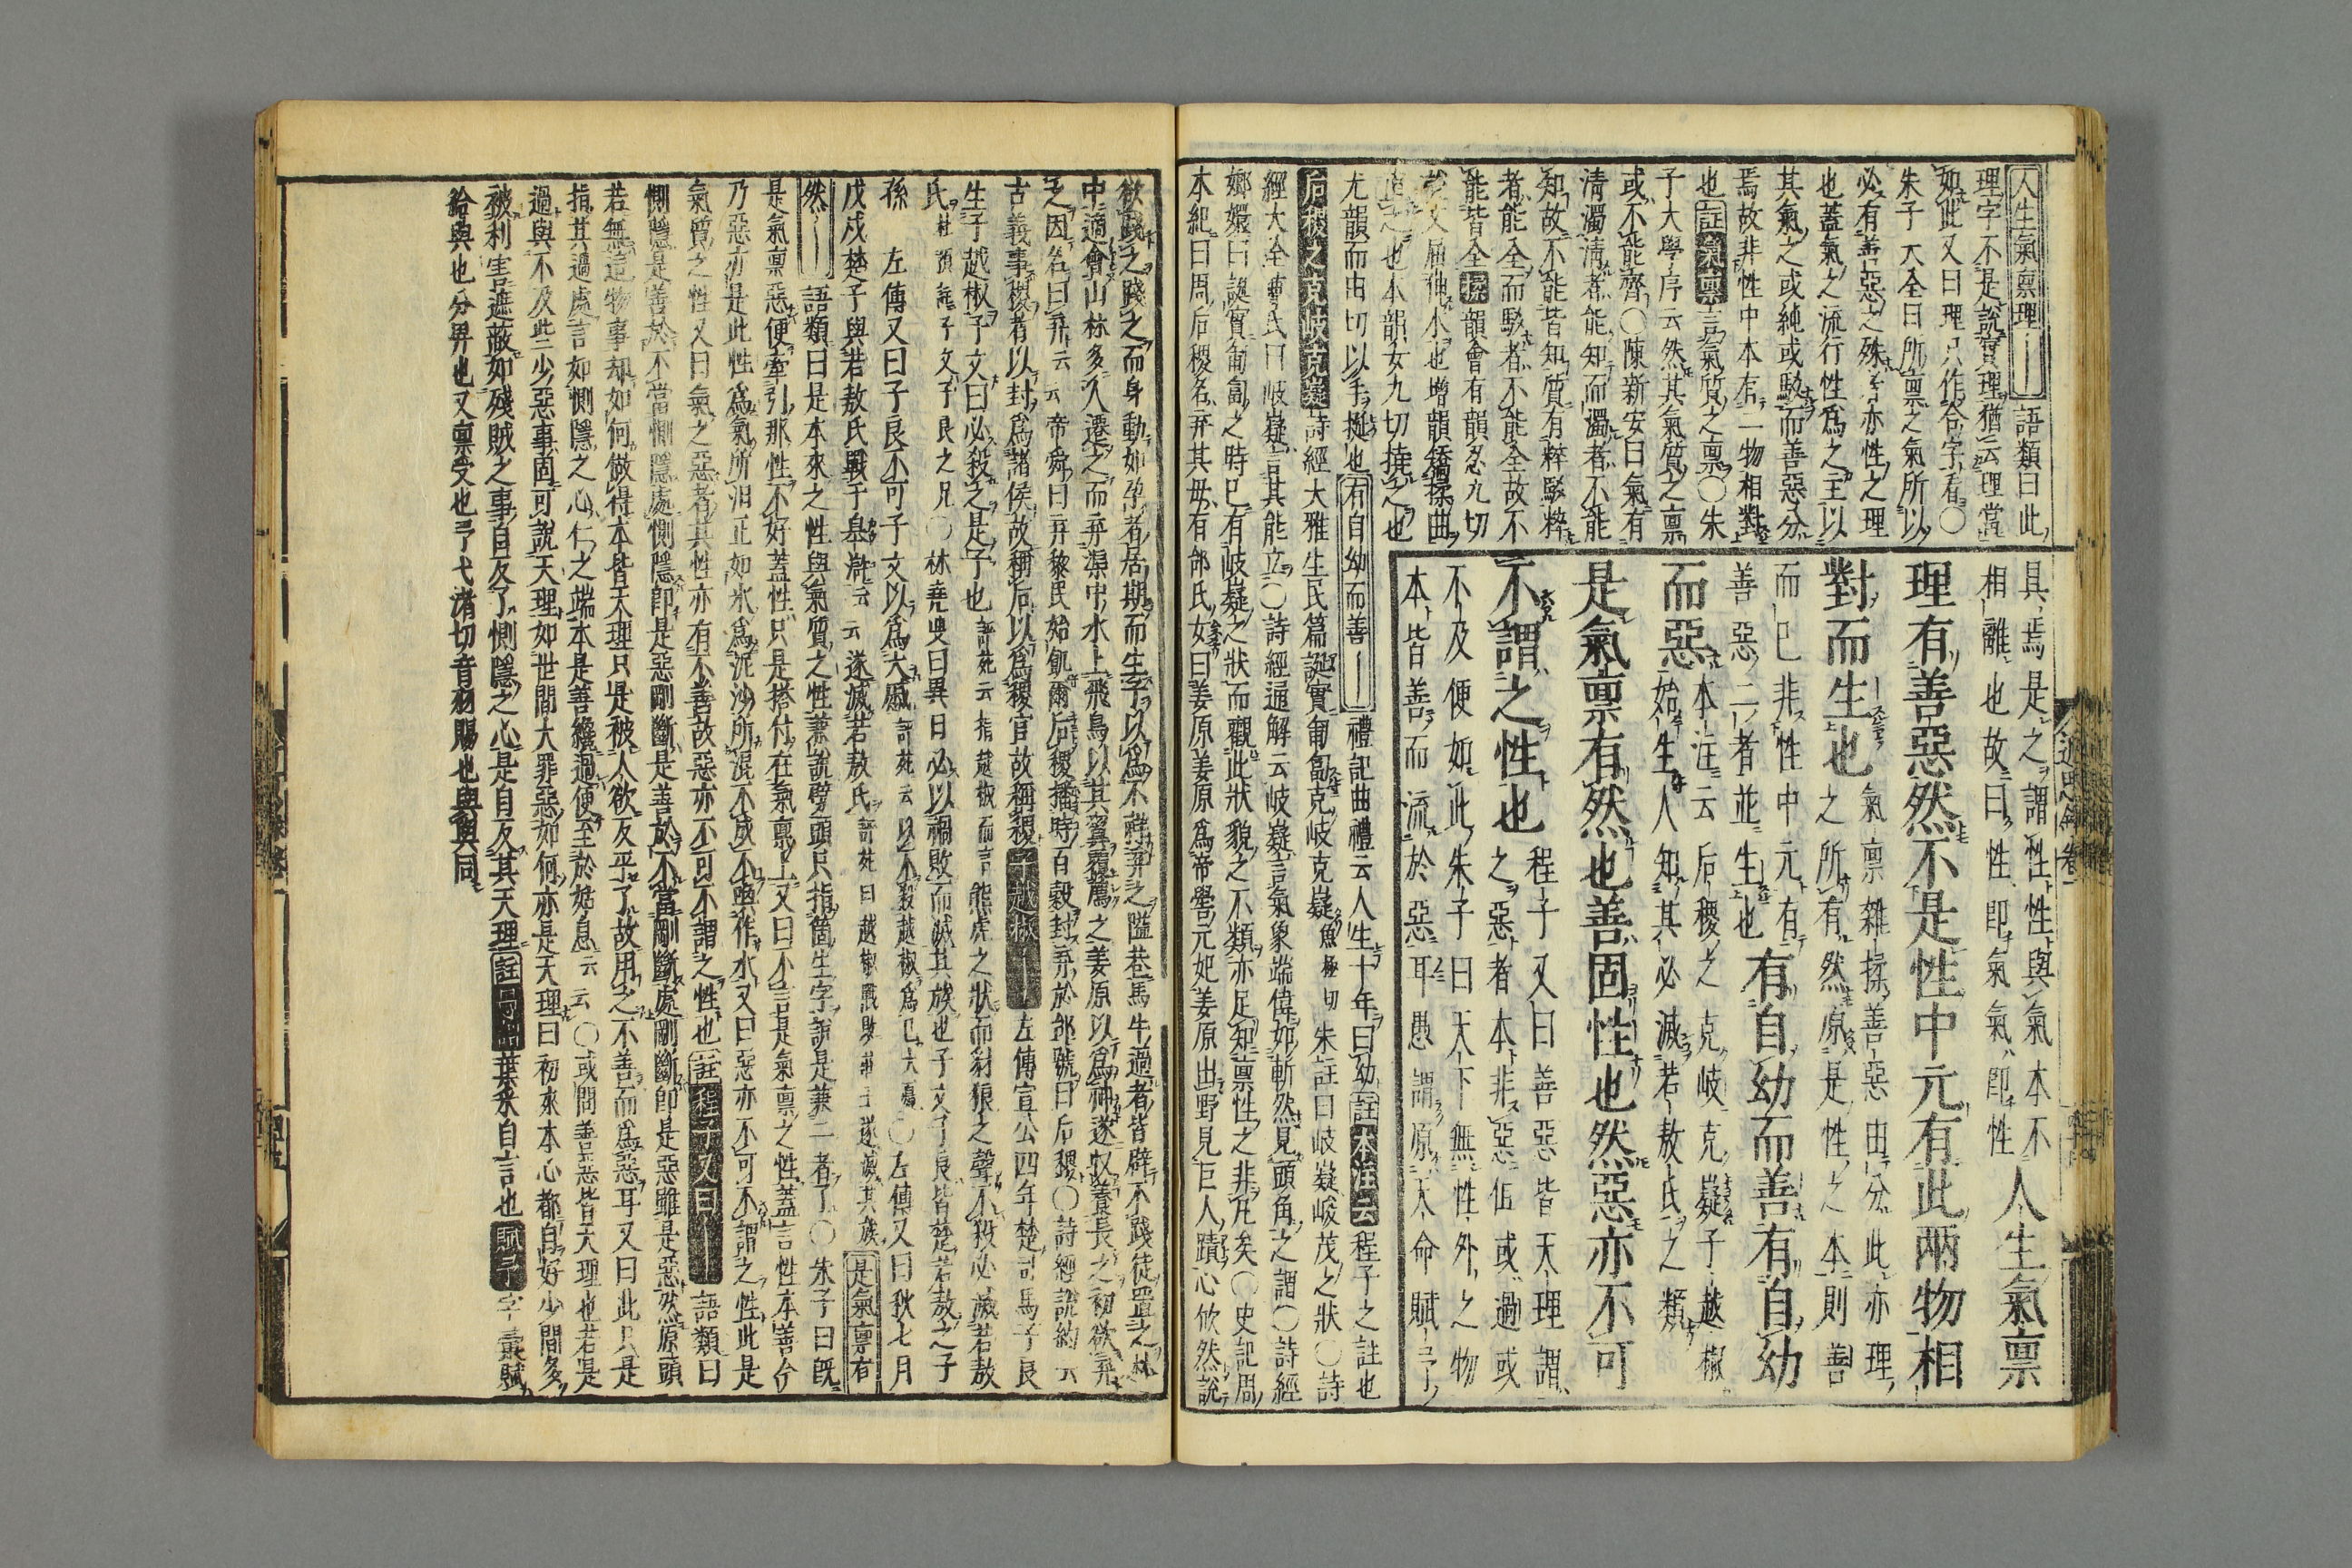 具焉是之謂性性與氣本不
相離也故曰性即氣氣即性
人生氣稟
理有善惡然不是性中元有此兩物相
對而生也
氣稟雜揉善惡由分此亦理
之所有然原是性之本則善
而已非性中元有
善惡二者並生也
有自幼而善有自幼
而惡
本注云后稷之克岐克嶷子越椒
始生人知其必滅若敖氏之類
是氣稟有然也善固性也然惡亦不可
不謂之性也
程子又曰善惡皆天理謂
之惡者本非惡但或過或
不及便如此朱子曰天下無性外之物
本皆善而流於惡耳愚謂原天命賦予
人生氣稟理
語類曰此
理字不是說實理猶云理當
如此又曰理只作合字看○
朱子大全曰所稟之氣所以
必有善惡之殊者亦性之理
也蓋氣之流行性爲之主以
其氣之或純或駁而善惡分
焉故非性中本有二物相對
也註氣稟言氣質之稟○朱
子大學序云然其氣質之稟
或不能齊○陳新安曰氣有
清濁清者能知而濁者不能
知故不能皆知質有粹駁粹
者能全而駁者不能全故不
能皆全揉韻會有韻忍九切
屈伸木也增韻矯揉曲
也本韻女九切撓之也
尤韻而由切以手挺也有自幼而善禮記曲禮云人生十年曰幼註本注云程子之註也
后稷之克岐克嶷詩經大雅生民篇誕實匍匐克岐克嶷魚極切朱註曰岐嶷峻茂之狀○詩
經大全曹氏曰岐嶷言其能立○詩經通解云岐嶷言氣象端偉如嶄然見頭角之謂○詩經
嫏嬛曰誕實匍匐之時已有岐嶷之狀而觀此狀貌之不類亦足知稟性之非凡矣○史記周
本紀曰周后稷名弃其母有邰氏女曰姜原姜原爲帝嚳元妃姜原出野見巨人蹟心忻然說
欲踐之踐之而身動如孕者居期而生子以爲不祥弃之隘巷馬牛過者皆辟不踐徙置之林
中適會山林多人遷之而弃渠中冰上飛鳥以其翼覆薦之姜原以爲神遂收養長之初欲弃
之因名曰弃云云帝舜曰弃黎民始飢爾后稷播時百穀封弃於邰號曰后稷○詩經說約云
古義事稷者以封爲諸侯故稱后以爲稷官故稱稷子越椒左傳宣公四年楚司馬子良
生子越椒子文曰必殺之是子也註疏云指越椒而言熊虎之狀而豺狼之聲不殺必滅若敖
氏杜預註子文子良之兄○林堯叟曰異日必以禍敗而滅其族也子文子良皆楚若敖之子
孫左傳又曰子良不可子文以爲大慼註疏云以不殺越椒爲已大慼○左傳又曰秋七月
戊戌楚子與若敖氏戰于皋滸云云遂滅若敖氏註疏曰越椒戰敗莊王遂滅其族是氣稟有
然語類曰是本來之性與氣質之性兼說劈頭只指箇生字說是兼二者了○朱子曰旣
是氣稟惡便牽引那性不好蓋性只是搭付在氣稟上又曰不言是氣稟之性蓋言性本善今
乃惡亦是此性爲氣所汨正如水爲泥沙所混不成不喚作水又曰惡亦不可不謂之性此是
氣質之性又曰氣之惡者其性亦有不善故惡亦不可不謂之性也註程子又曰語類曰
惻隱是善於不當惻隱處惻隱即是惡剛斷是善於不當剛斷處剛斷即是惡雖是惡然原頭
若無這物事却如何做得本皆天理只是被人欲反乎了故用之不善而爲惡耳又曰此只是
指其過處言如惻隱之心仁之端本是善纔過便至於姑息云云○或問善惡皆天理也若是
過與不及些少惡事固可說天理如世間大罪惡如何亦是天理曰初來本心都自好少間多
被利害遮蔽如殘賊之事自反了惻隱之心是自反其天理註愚謂葉采自言也賦予字彙賦
給與也分畀也又稟受也予弋渚切音羽賜也與與同